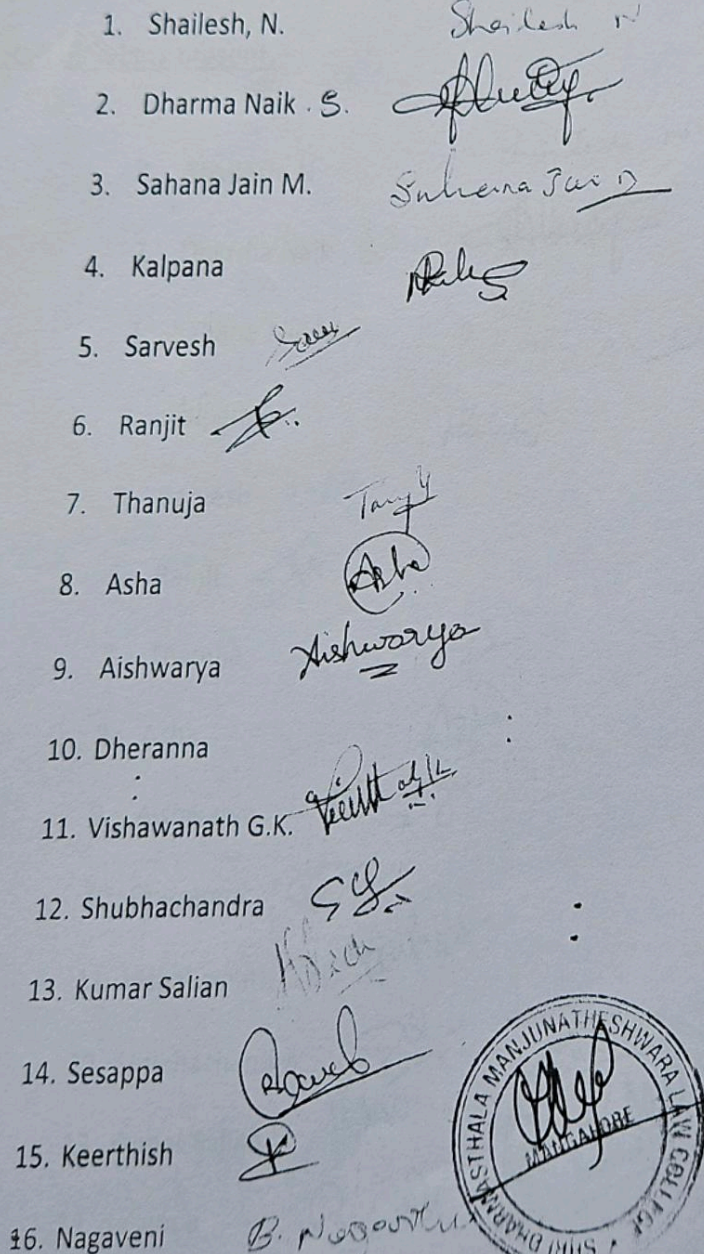 1. Shailesh, N. Shailesh N
2. Dharma Naik . S.
3. Sahana Jain M. Sahana Jain
4. Kalpana
5. Sarvesh
6. Ranjit
7. Thanuja
8. Asha Asha
9. Aishwarya Aishwarya
10. Dheranna
11. Vishawanath G.K.
12. Shubhachandra
13. Kumar Salian
14. Sesappa
15. Keerthish
16. Nagaveni B.
SHRI DHARMASTHALA MANJUNATHESHWARA LAW COLLEGE
MANGALORE